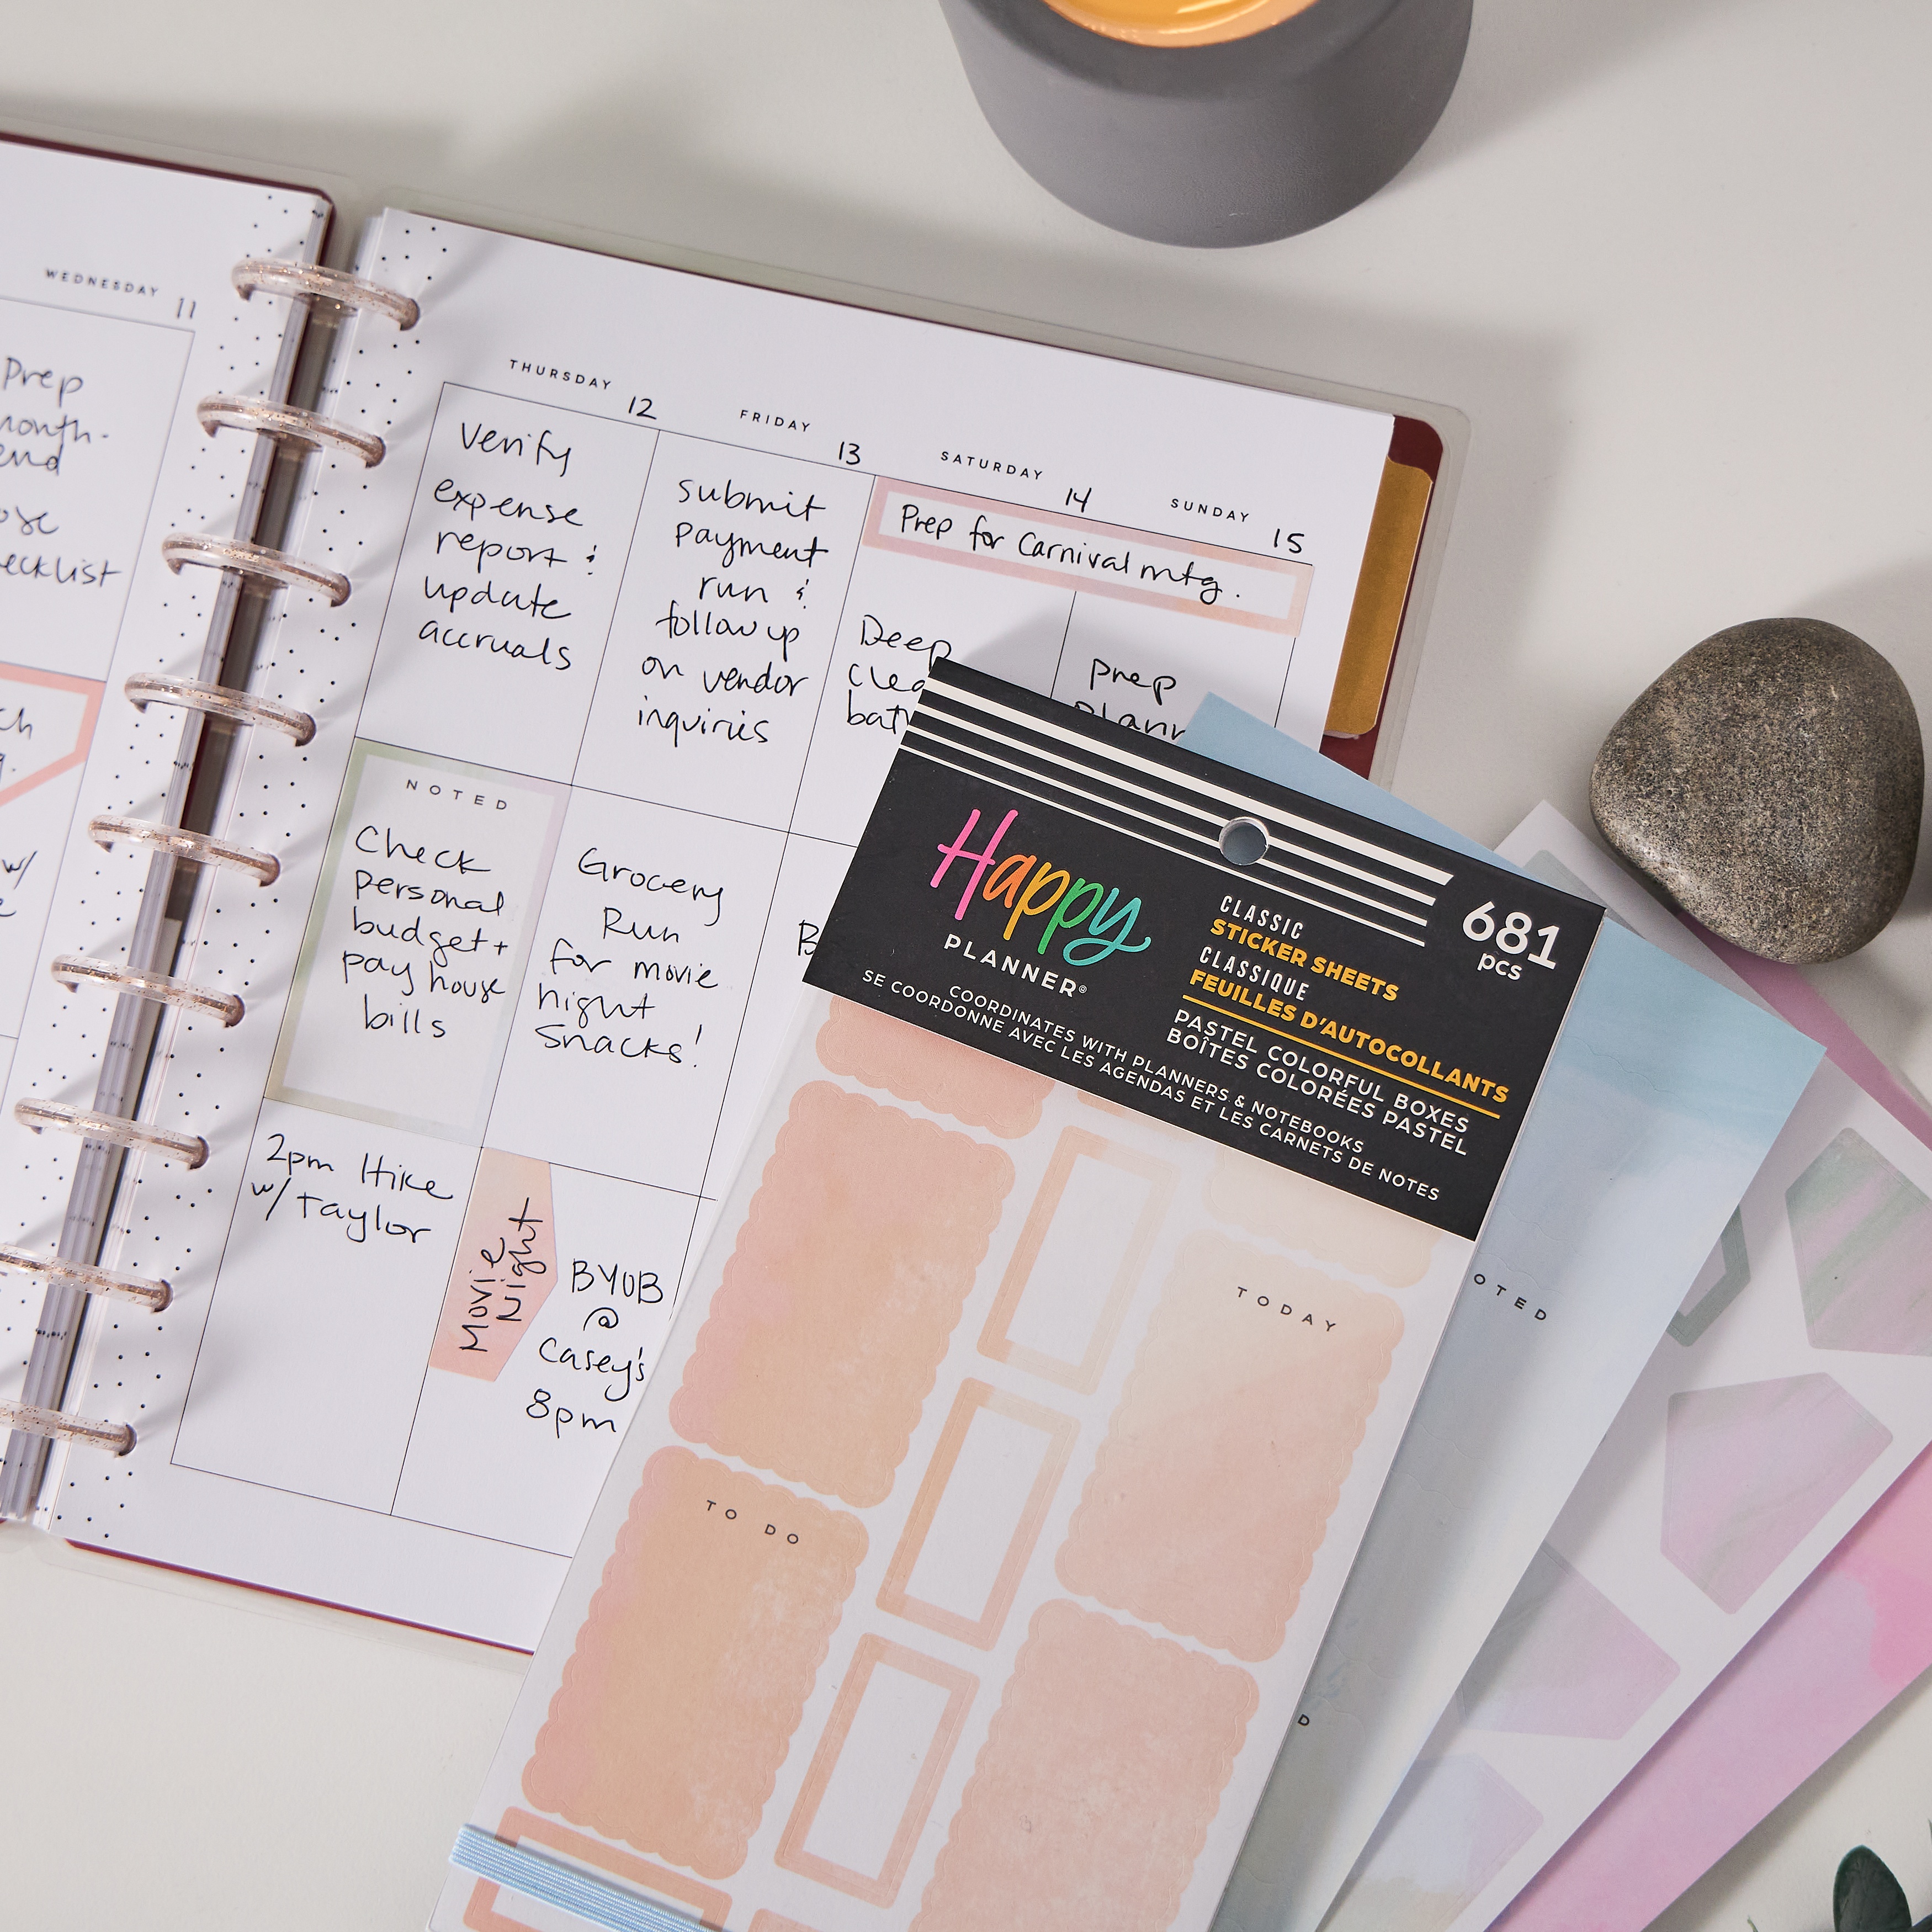 WEDNESDAY 11
Prep
month-
end
checklist
w/
THURSDAY 12
Verify
expense
report &
update
accruals
NOTED
Check
personal
budget +
pay house
bills
2pm Hike
w/ Taylor
FRIDAY 13
submit
payment
run &
follow up
on vendor
inquiries
Grocery
Run
for movie
night
snacks!
Movie
Night
BYOB
@
Casey's
8pm
SATURDAY 14
SUNDAY 15
Prep for Carnival mtg.
Deep
prep
Happy
PLANNER®
COORDINATES WITH PLANNERS & NOTEBOOKS
SE COORDONNE AVEC LES AGENDAS ET LES CARNETS DE NOTES
CLASSIC
STICKER SHEETS
CLASSIQUE
FEUILLES D'AUTOCOLLANTS
PASTEL COLORFUL BOXES
BOÎTES COLORÉES PASTEL
681
pcs
TODAY
TO DO
OTED
D